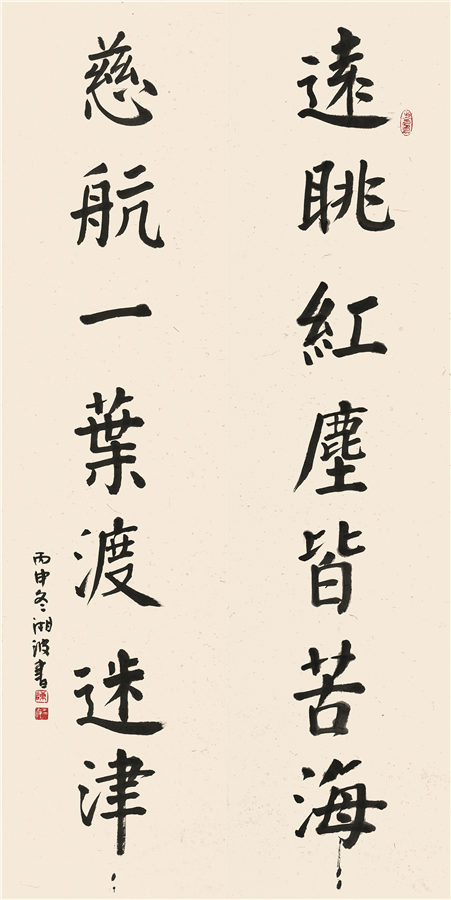 遠眺紅塵皆苦海
慈航一葉渡迷津
丙申冬湖波書